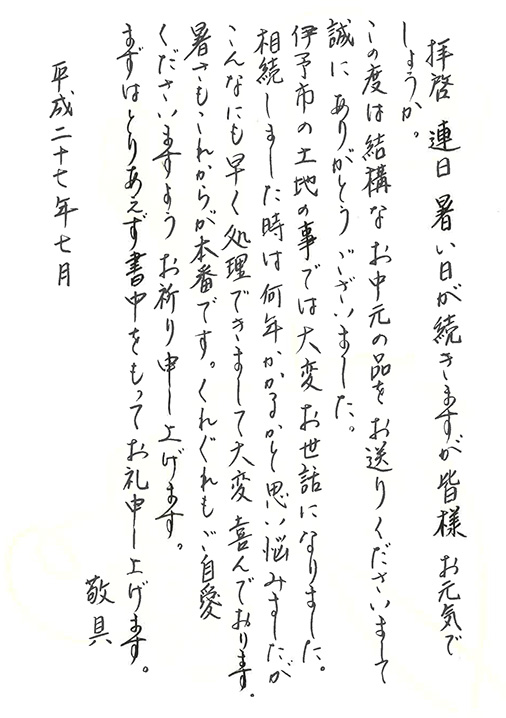 拝啓 連日 暑い日が続きますが皆様 お元気で
しょうか。
この度は結構な お中元の品を お送りくださいまして
誠に ありがとう ございました。
伊予市の土地の事では大変 お世話になりました。
相続しました時は何年かかるかと思い悩みましたが
こんなにも早く処理できまして大変 喜んでおります。
暑さもこれからが本番です。くれぐれもご自愛
くださいますよう お祈り申し上げます。
まずはとりあえず書中をもってお礼申し上げます。
敬具
平成二十七年七月